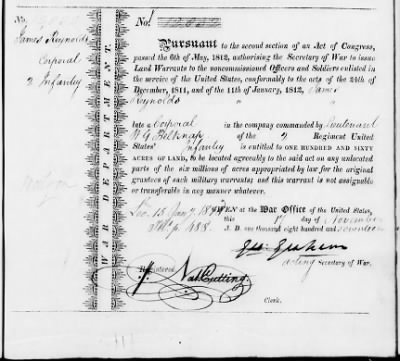 James Reynolds
Corporal
2 Infantry
WAR DEPARTMENT.
No.
Pursuant to the second section of an Act of Congress,
passed the 6th of May, 1812, authorising the Secretary of War to issue
Land Warrants to the noncommissioned Officers and Soldiers enlisted in
the service of the United States, conformably to the acts of the 24th of
December, 1811, and of the 11th of January, 1812, James
Reynolds " "
late a Corporal in the company commanded by Lieutenant
W G Belknap of the 2 Regiment United
States' Infantry is entitled to ONE HUNDRED AND SIXTY
ACRES OF LAND, to be located agreeably to the said act on any unlocated
parts of the six millions of acres appropriated by law for the original
grantees of such military warrants; and this warrant is not assignable
or transferable in any manner whatever.
GIVEN at the War Office of the United States,
this day of November
A. D. one thousand eight hundred and seventeen
Geo: Graham
acting Secretary of War.
Registered
Nath Cutting
Clerk.